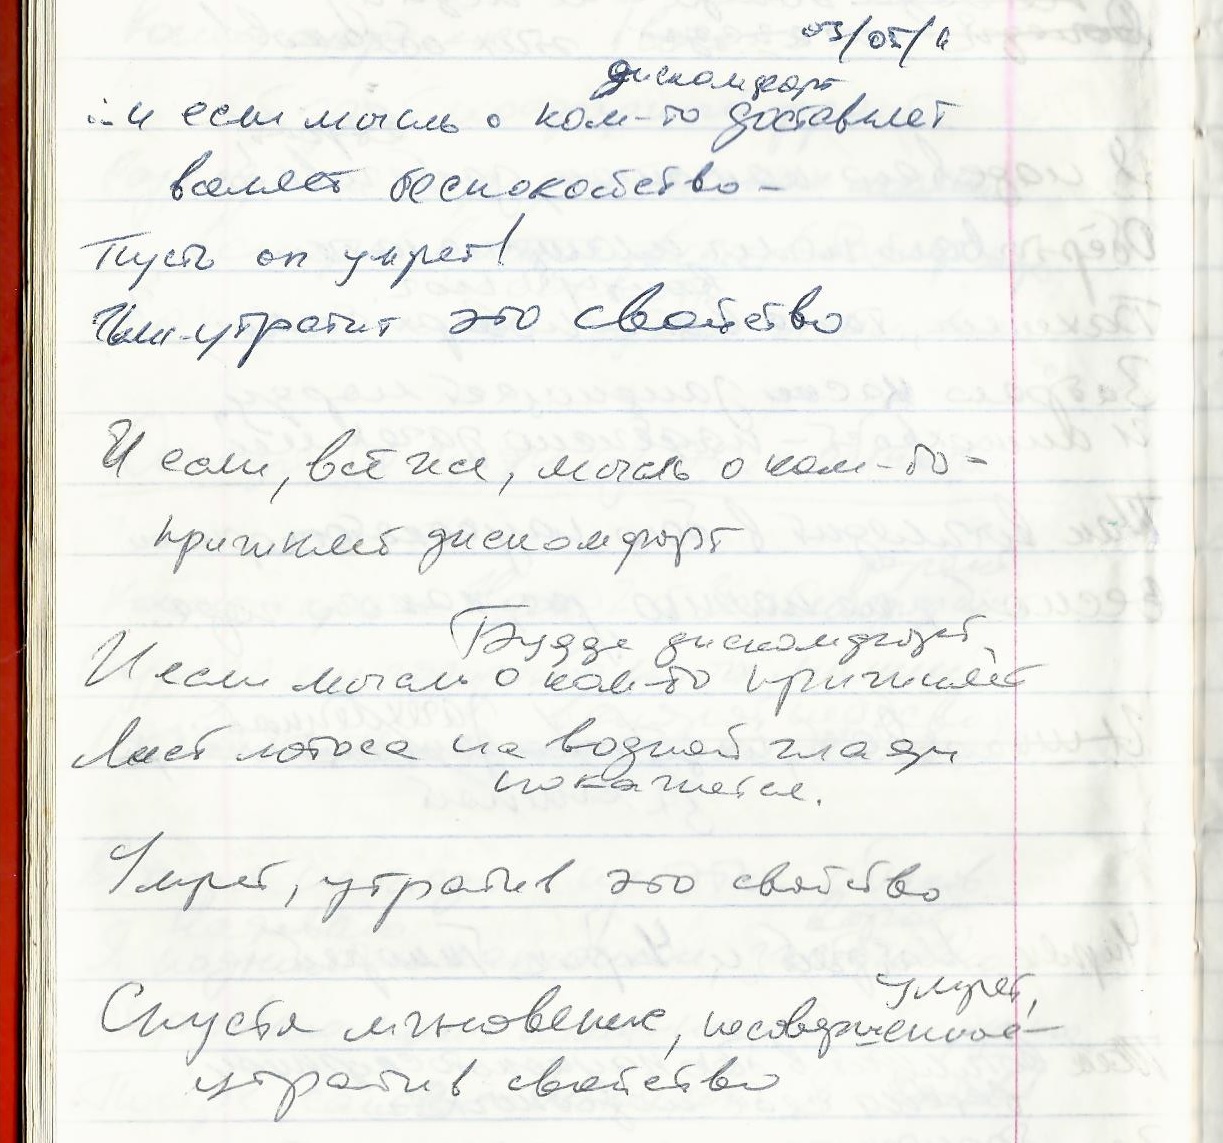 03/05/
дискомфорт
...и если мысль о ком-то доставляет
вселяет беспокойство –
Пусть он умрет!
Или утратит это свойство
И если, всё же, мысль о ком-то –
причиняет дискомфорт
Будде дискомфорт
И если мысль о ком-то причиняет
Лист лотоса на водной глади
покачнется.
Умрет, утратив это свойство
умрет,
Спустя мгновение, несовершенное –
утратив свойство